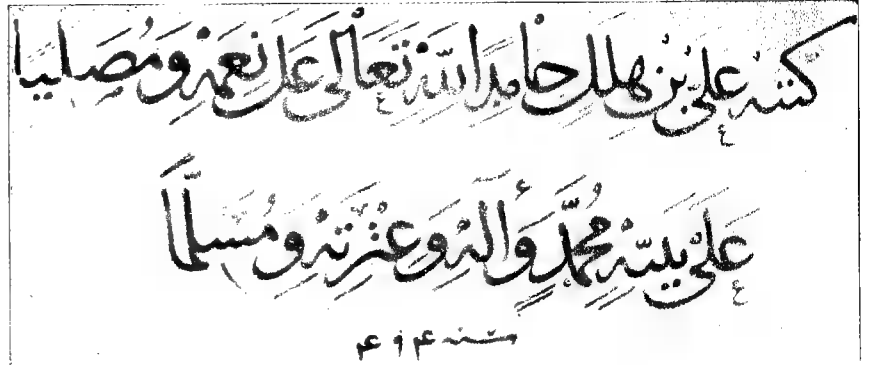 كتبه عَلِيُّ بْنُ هِلَلٍ حامِدًا لِلّهِ تَعَالَى عَلَى نِعَمِهِ وَمُصَلِّيًا
عَلَى نَبِيِّهِ مُحَمَّدٍ وَآلِهِ وَعِتْرَتِهِ وَمُسَلِّمًا
سنه